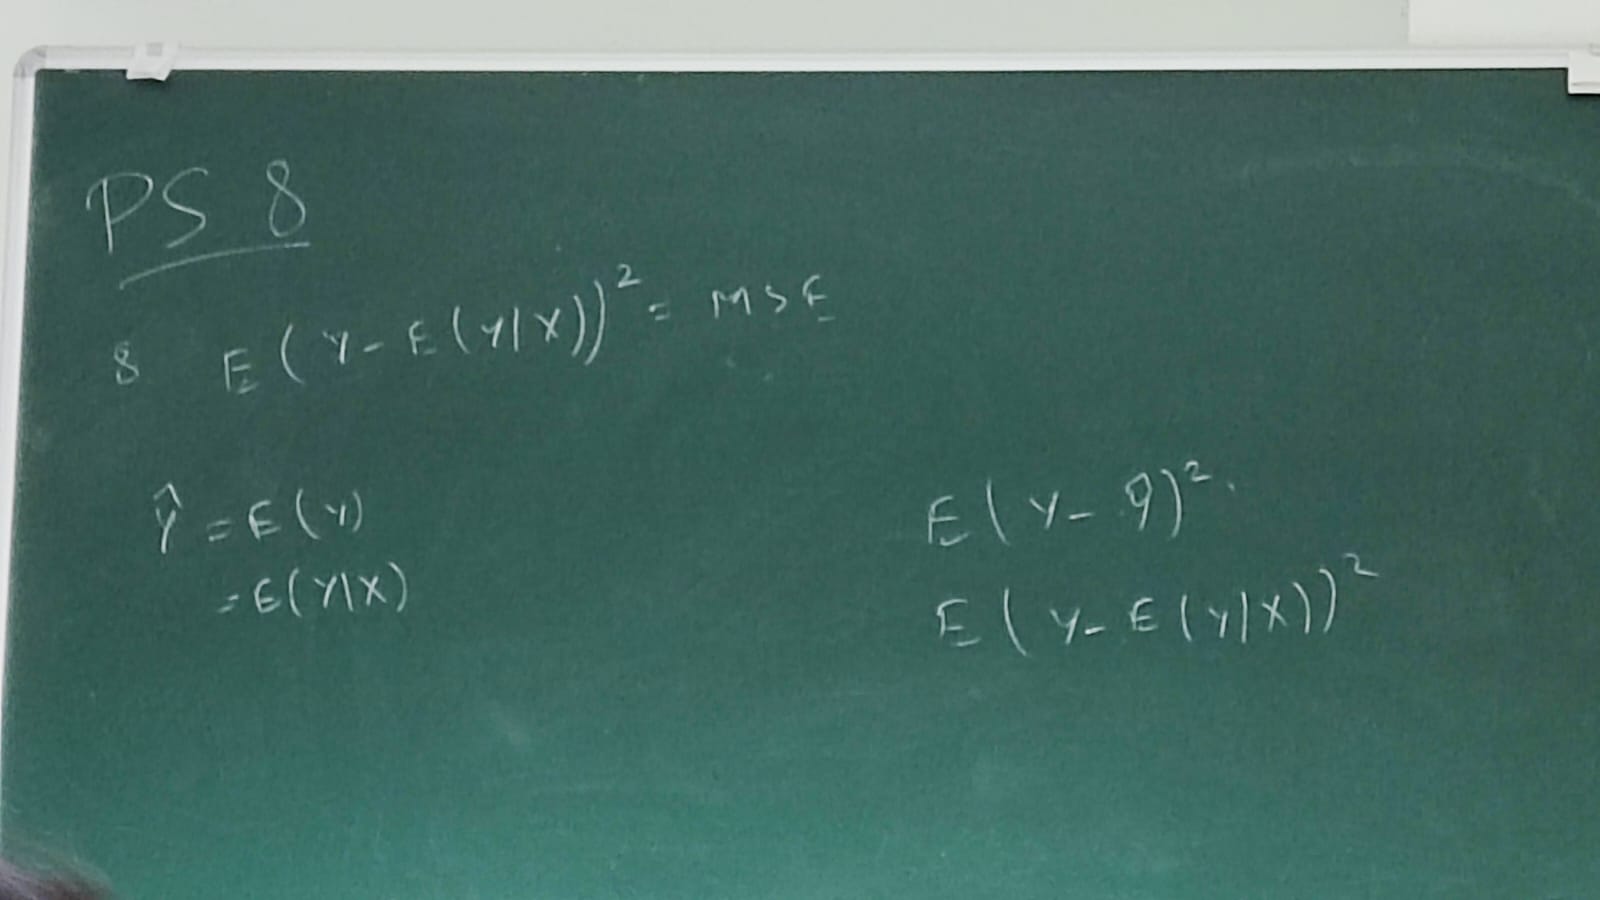 PS 8
8 E(Y-E(Y|X))² = MSE
Ŷ = E(Y)
= E(Y|X)
E(Y-Ŷ)².
E(Y-E(Y|X))²